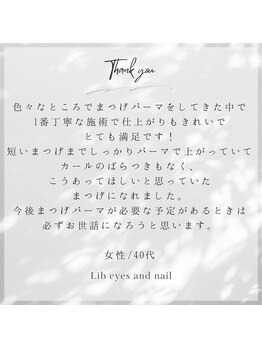 Thank you
色々なところでまつげパーマをしてきた中で
1番丁寧な施術で仕上がりもきれいで
とても満足です！
短いまつげまでしっかりパーマで上がっていて
カールのばらつきもなく、
こうあってほしいと思っていた
まつげになれました。
今後まつげパーマが必要な予定があるときは
必ずお世話になろうと思います。
女性/40代
Lib eyes and nail